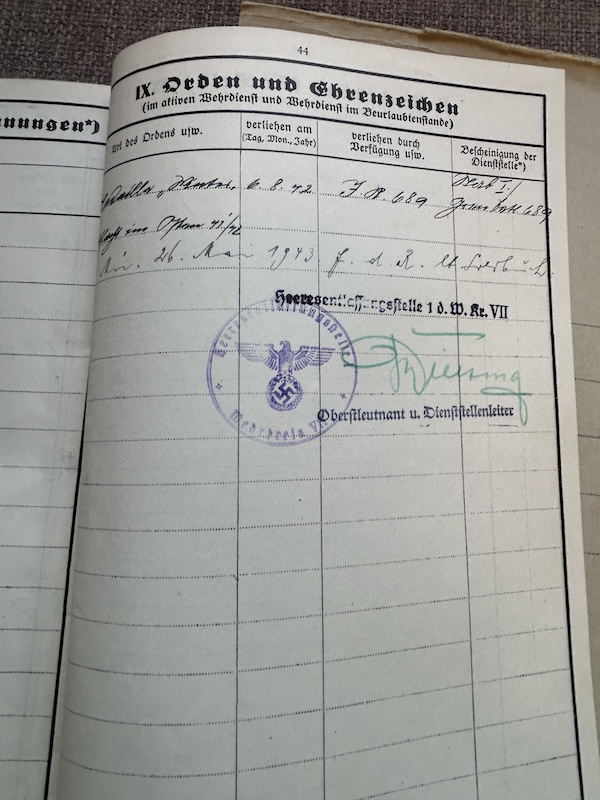 44
nungen*)
IX. Orden und Ehrenzeichen
(im aktiven Wehrdienst und Wehrdienst im Beurlaubtenstande)
Art des Ordens usw.
verliehen am
(Tag, Mon., Jahr)
verliehen durch
Verfügung usw.
Bescheinigung der
Dienststelle*)
6.8.42
I.R. 689
689
im Osten 41/42
26. Mai 1943 f. d. R.
Heeresentlassungsstelle 1 d. W. Kr. VII
Heeresentlassungsstelle 1
Wehrkreis VII
Oberstleutnant u. Dienststellenleiter